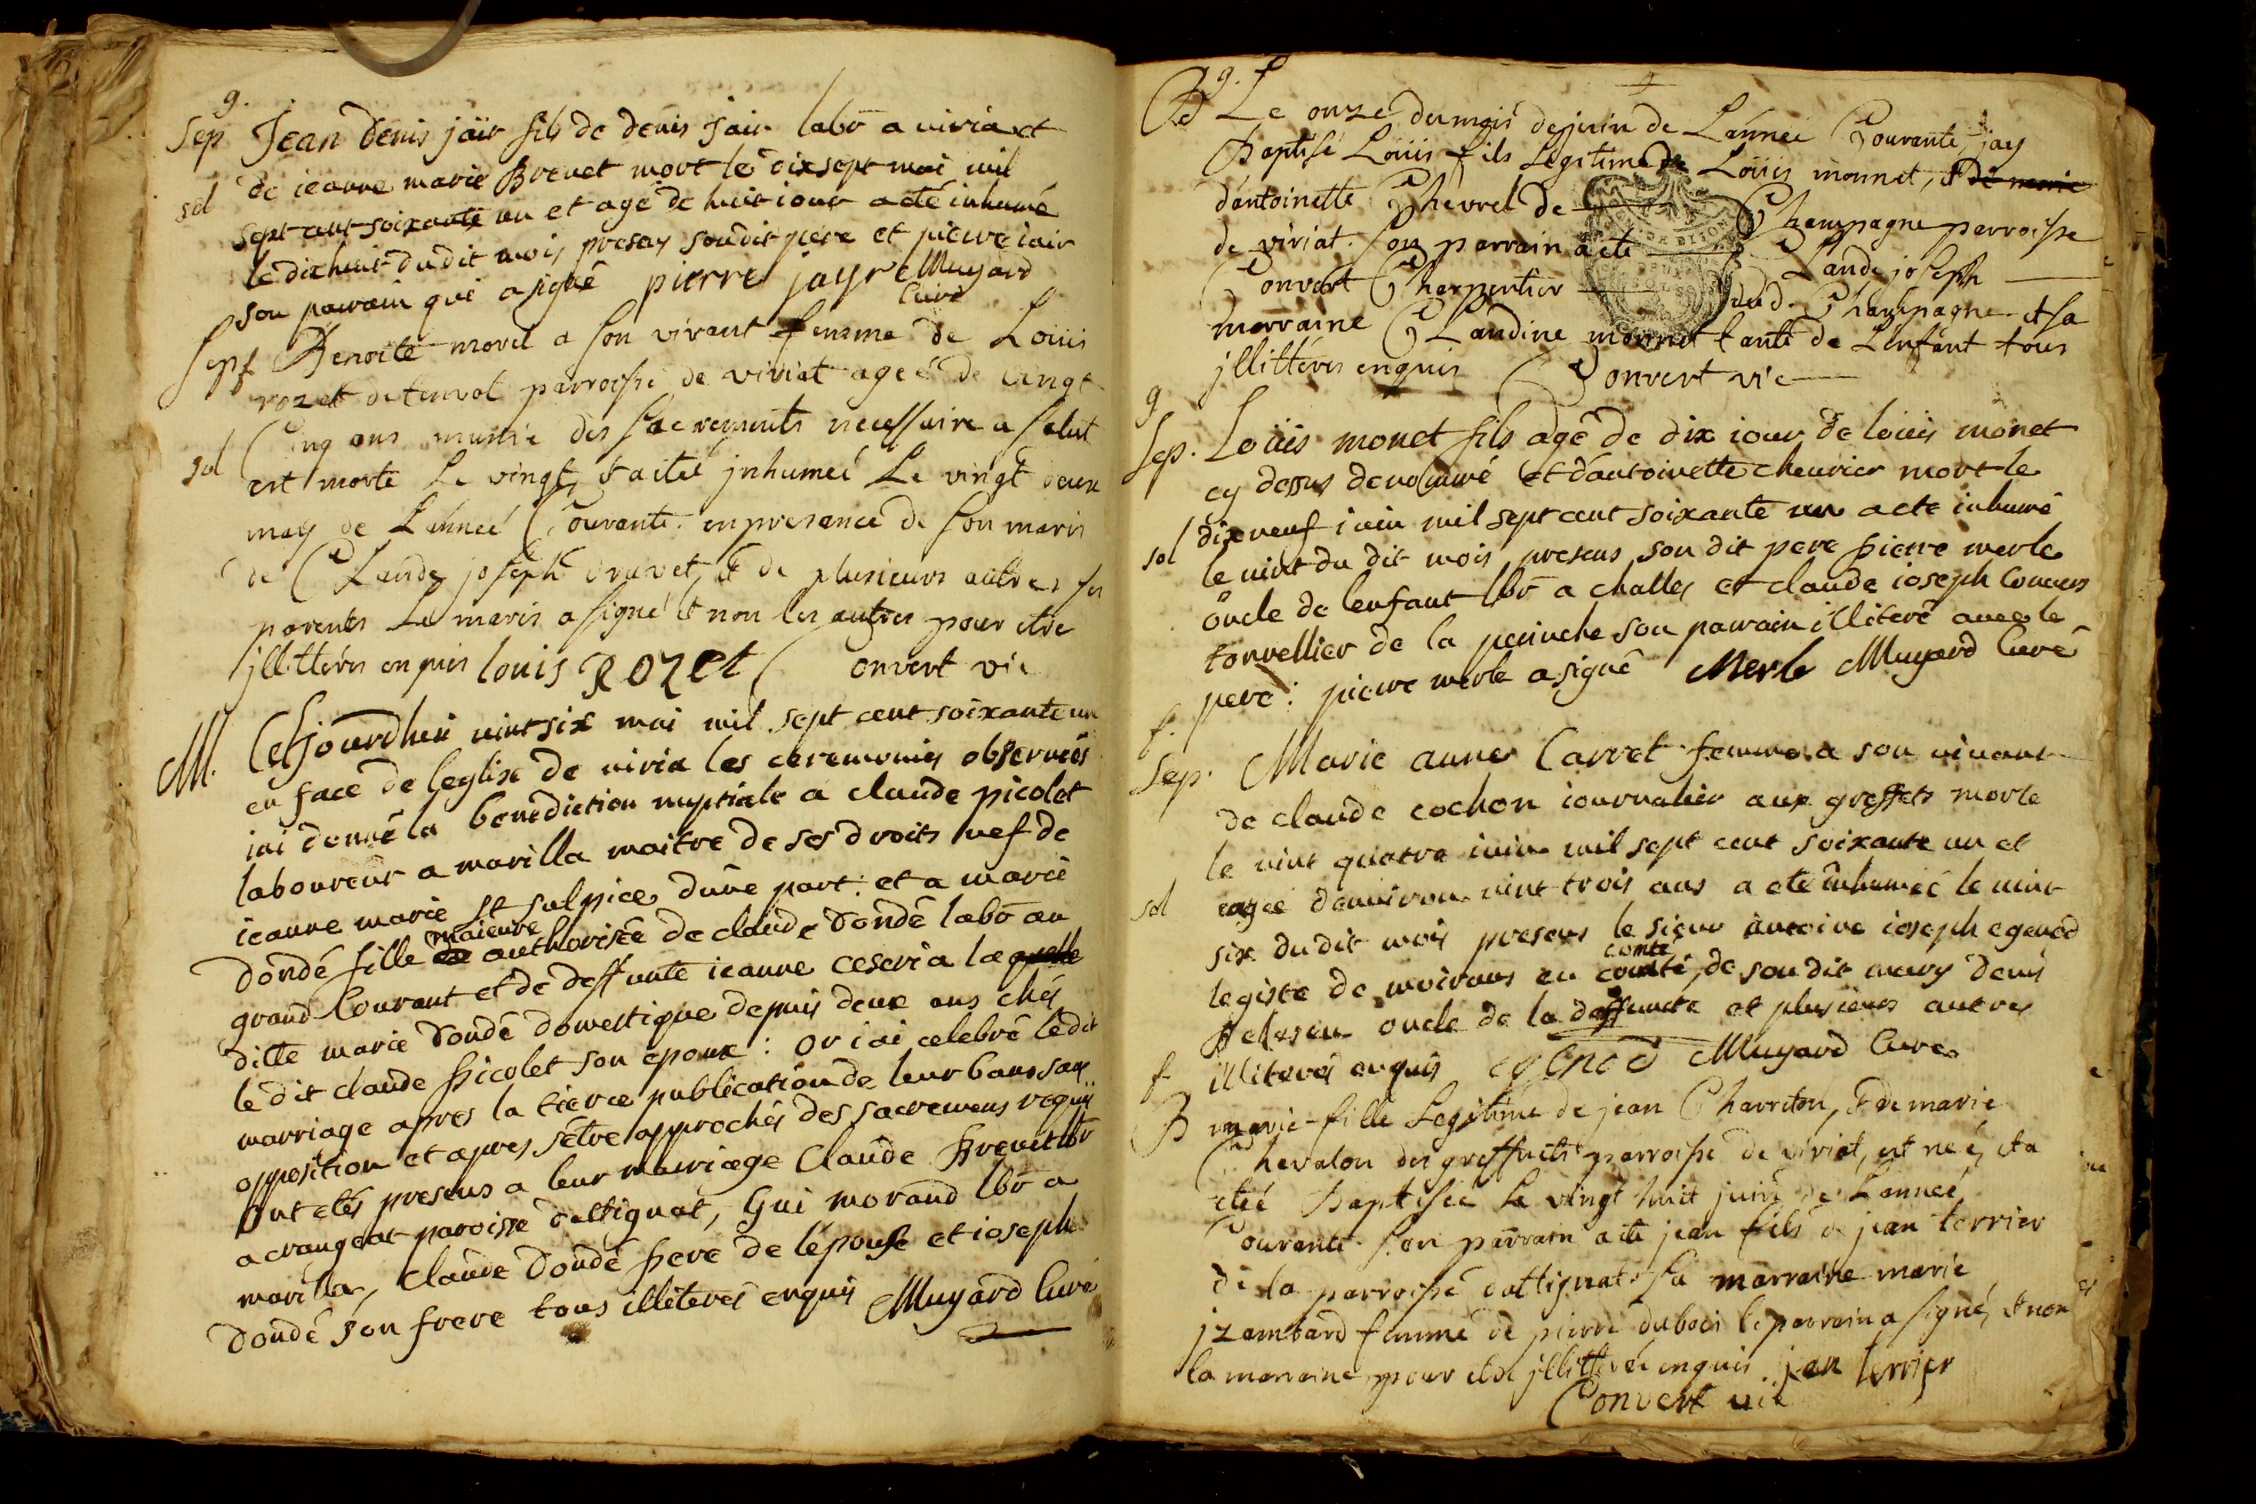 g.
Sep Jean denis jaïr fils de denis jair labō a viria et
sol de ieanne marie Brevet mort le dixsept mai mil
sept cent soixante un et agé de huit iour a eté inhumé
le dix huit du dit mois presens son dit pere et pierre iair
son parrain qui a signé pierre jayr Muyard
curé
Sep f Benoite morel a son vivant femme de Loüis
rozet de tenvol parroisse de viriat ageé de vingt
Cinq ans munie des sacrements necessaire a salut
sol est morte Le vingt, & a eteé jnhumeé Le vingt deux
may de L'anneé Courante en presance de son maris
de Claude joseph bruvet, & de plusieurs autres ses
parents Le maris a signé & non les autres pour etre
jllitterés enquis louis Rozet Convert vic
M. Cejourdhui vint six mai mil sept cent soixante un
en face de leglise de viria les ceremonies observées
iai donné la benediction nuptiale a claude picolet
laboureur a marilla maitre de ses droits vef de
ieanne marie st sulpice dune part: et a marie
majeure
dondé fille de authorisée de claude dondé labō au
grand Courant et de deffunte ieanne ceseria laquelle
ditte marie dondé domestique depuis deux ans chés
le dit claude picolet son epoux: or iai celebré le dit
marriage apres la tierce publication de leur bans sans
opposition et apres sétre approchés des sacremens requis
ont etés presens a leur marriage Claude Brevet lbō
a crangeat paroisse dattignat, Gui morand lbō a
marilla, Claude dondé pere de lépouse et ioseph
dondé son frere tous illiterés enquis Muyard curé
g.
B Le onze du mois de juin de L'anneé Courante, jay
Baptisé Loüis fils Legitime de Loüis monnet, & de marie
d'antoinette Chevrel de Champagne parroisse
de viriat. son parrain a ete Claude joseph
Convert Charpentier dud. Champagne & sa
marraine Claudine monnet tante de L'enfant tous
jllitterés enquis Convert vic
g
Sep. Loüis monet fils agé de dix iour de loüis monet
cy dessus denommé et d'antoinette cheurier mort le
dix neuf iuin mil sept cent soixante un a ete inhumé
sol le vint du dit mois presens son dit pere pierre merle
oncle de lenfant lbō a challes et claude ioseph Convers
tonnellier de la peruche son parrain illiteré avec le
pere: pierre merle a signé Merle Muyard Curé
f.
Sep. Marie anne Carret femme a son vivant
de claude cochon iournalier aux greffets morte
le vint quatre iuin mil sept cent soixante un et
sol agée denviron vint trois ans a eté inhumeé le vint
six du dit mois presens le sieur antoine ioseph egenod
comté
legiste de moirans en comté, de son dit mary denis
oncle de la deffuncte et plusieurs autres
illiterés enquis egenod Muyard Curé
f
B marie fille Legitime de jean Charriton, & de marie
Chevalon des greffets parroisse de viriat, est neé, & a
eteé Baptiseé Le vingt huit juin de L'anneé
Courante. son parrain a ete jean fils de jean terrier
de la parroisse dattignat. sa marraine marie
jzambard femme de pierre dubois le parrain a signé, & non
la marraine pour etre jllitterée enquis jean terrier
Convert vic